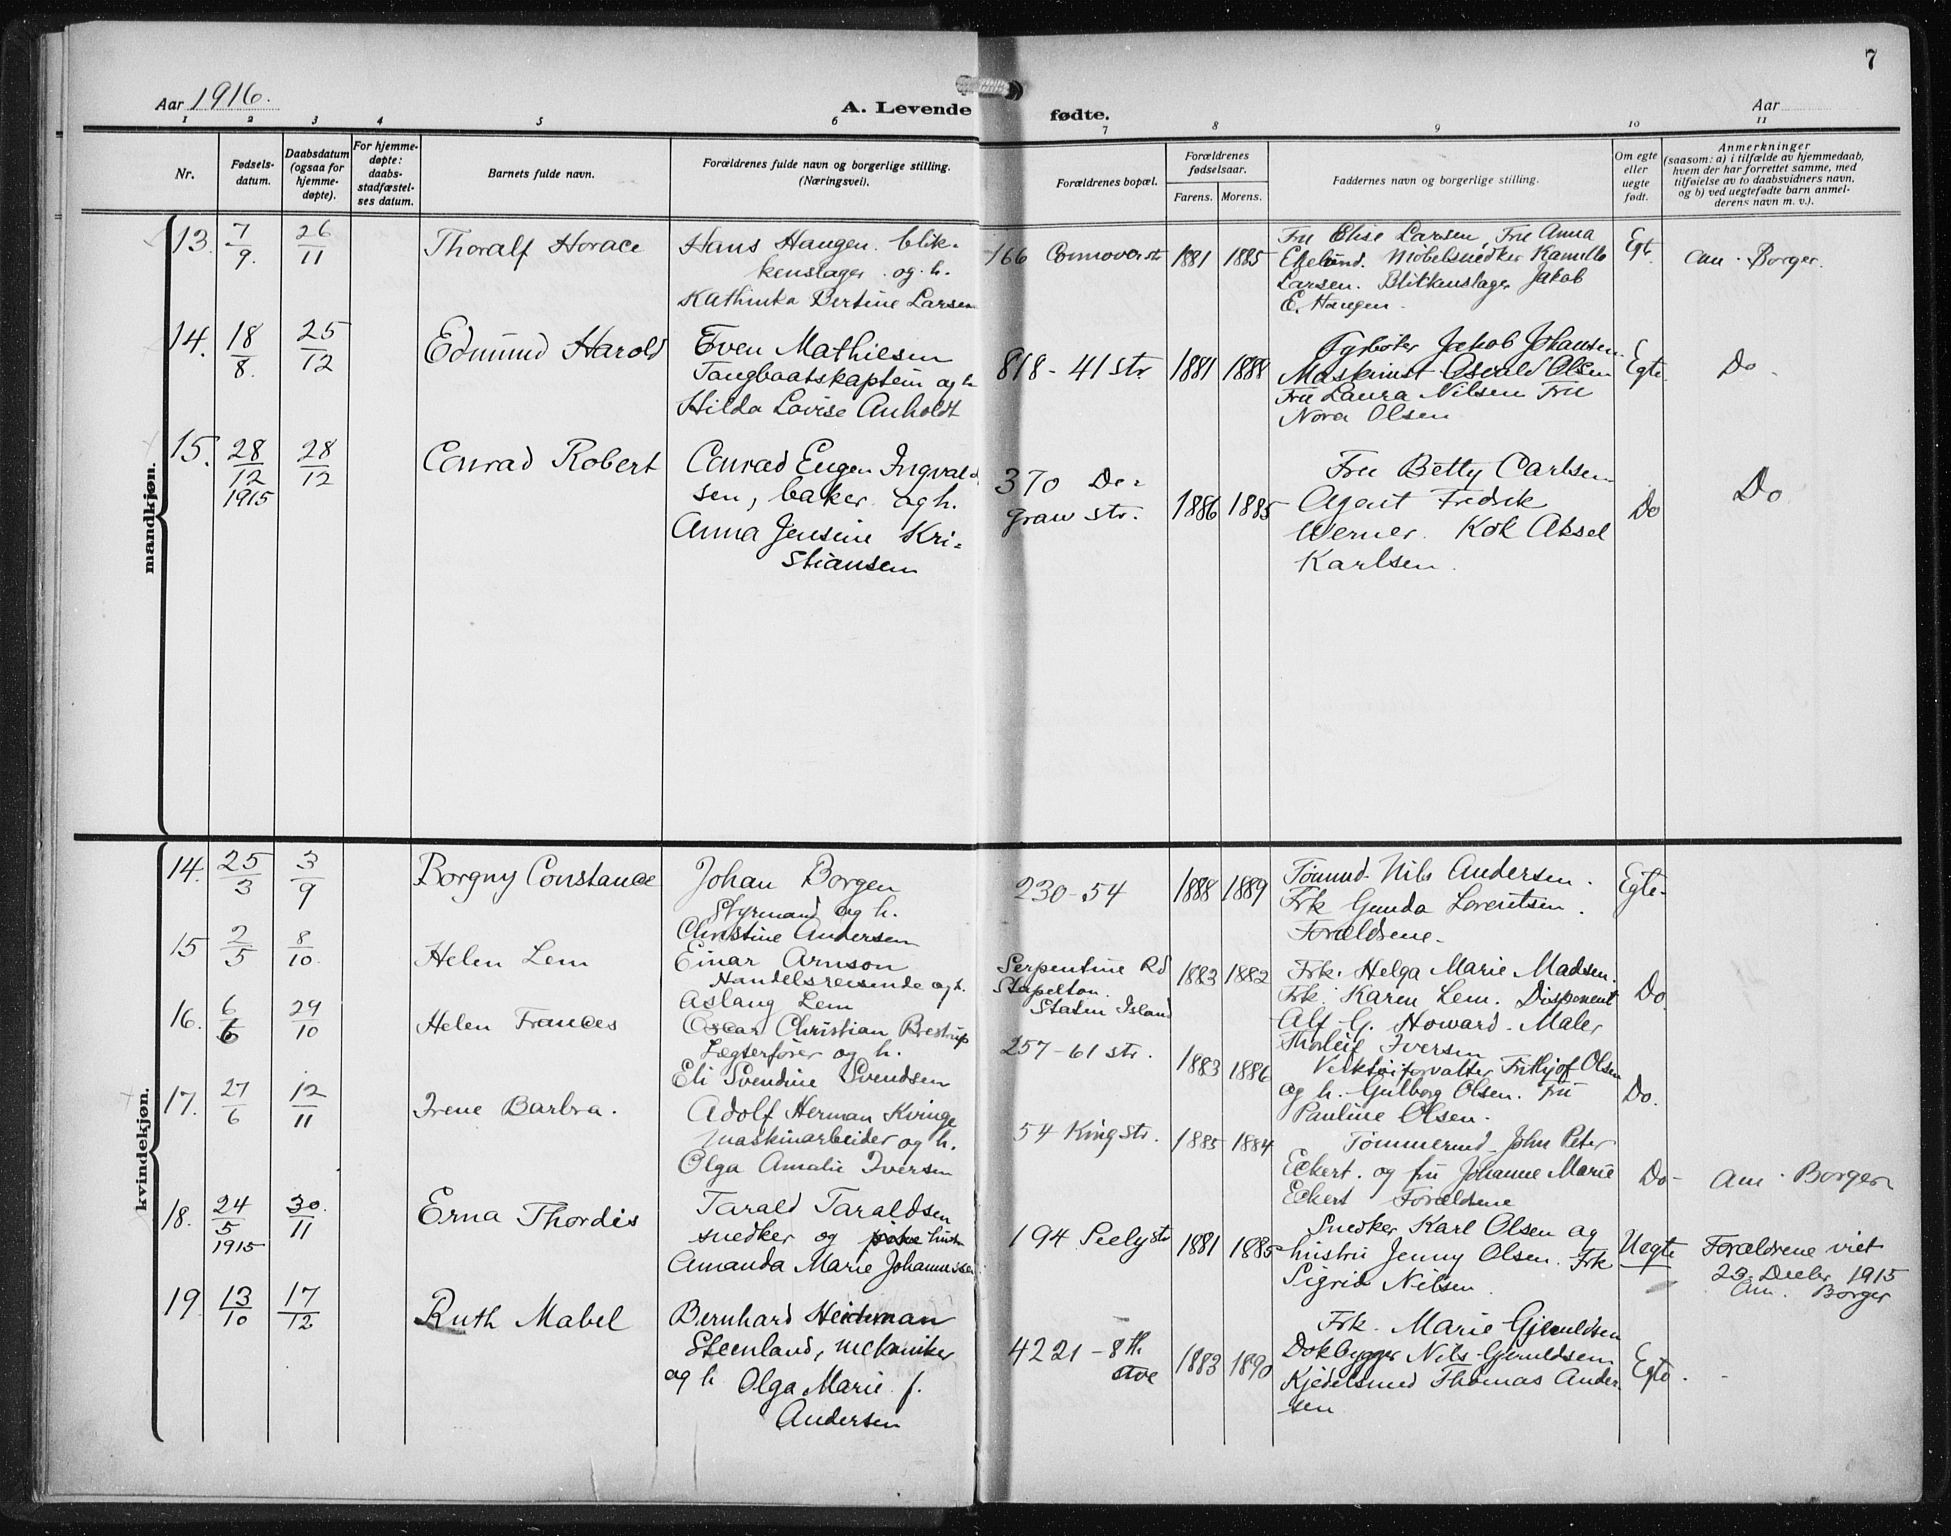 7
Aar 1916.
A. Levende fødte.
Aar
1 2 3 4 5 6 7 8 9 10 11
Nr.
Fødsels-
datum.
Daabsdatum
(ogsaa for
hjemme-
døpte).
For hjemme-
døpte:
daabs-
stadfæstel-
ses datum.
Barnets fulde navn.
Forældrenes fulde navn og borgerlige stilling.
(Næringsvei).
Forældrenes bopæl.
Forældrenes
fødselsaar.
Farens. Morens.
Faddernes navn og borgerlige stilling.
Om egte
eller
uegte
født.
Anmerkninger
(saasom: a) i tilfælde av hjemmedaab,
hvem der har forrettet samme, med
tilføielse av to daabsvidners navn,
og b) ved uegtefødte barn anmel-
derens navn m. v.).
mandkjøn.
13. 7/9. 26/11
Thoralf Horace
Hans Haugen. blik-
kenslager og h.
Kathinka Bertine Larsen
166 Connoverstr
1881 1885
Fru Elise Larsen, Fru Anna
Ekelund. Møbelsnedker Kamillo
Larsen. Blikkenslager Jakob
E. Haugen.
Egt.
Am. Borger.
14. 18/8. 25/12
Edmund Harold
Even Mathiesen
Taugbaatskaptein og h
Hilda Lovise Anholdt
818 - 41 str.
1881 1888
Fyrbøter Jakob Johansen.
Maskinist Osvald Olsen
Fru Laura Nilsen Fru
Nora Olsen
Egte.
Do.
15. 28/12 1915 28/12
Conrad Robert
Conrad Eugen Ingvald
sen, baker og h.
Anna Jensine Kri-
stiansen
370 De-
graw str.
1886 1885
Fru Betty Carlsen
Agent Fredrik
Werner. Kok Aksel
Karlsen.
Do
Do
kvindekjøn.
14. 25/3 3/9
Borgny Constance
Johan Borgen
Styrmand og h.
Christine Andersen
230 - 54
1888 1889
Tømmd. Nils Andersen.
Frk Gunda Lorentsen.
Forældrene.
Egte.
15 2/5 8/10.
Helen Lem
Einar Arnson
Handelsreisende og h.
Aslaug Lem
Serpentine Rd
Stapelton.
Staten Island
1883 1882
Frk. Helga Marie Madsen.
Frk. Karen Lem. Disponent
Alf G. Howard. Maler
Thorleif Iversen
Do
16. 6/6 29/10
Helen Frances
Oscar Christian Brestrup
Lægterfører og h.
Eli Svendine Svendsen
257 - 61 str.
1883 1886
Verktøiforvalter Frithjof Olsen
og h. Gulborg Olsen. Fru
Pauline Olsen.
Do.
17. 27/6 12/11
Irene Barbra.
Adolf Herman Kvinge
maskinarbeider og h.
Olga Amalie Iversen
54 King str.
1885 1884
Tømmermd. John Peter
Eckert. og fru Johanne Marie
Eckert Forældrene
Do.
Am. Borger
18. 24/5 1915 30./11
Erna Thordis
Tarald Taraldsen
snedker og hustr
Amanda Marie Johannessen
194 Seely str
1881 1885
Snedker Karl Olsen og
hustru Jenny Olsen. Frk
Sigrid Nilsen.
Uegte
Forældrene viet
23. Decbr 1915
Am. Borger
19. 13/10 17/12
Ruth Mabel
Bernhard Heidman
Steenland, mekaniker
og h Olga Marie f.
Andersen
4221 - 8th
ave
1883 1890
Frk. Marie Gjeruldsen
Dokbygger Nils Gjeruldsen
Kjedelsmed Thomas Ander-
sen
Egte.